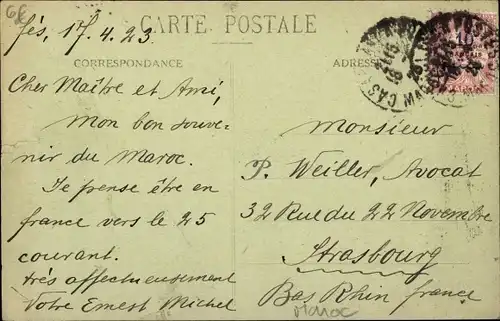 CARTE POSTALE
fés, 17.4.23.
CORRESPONDANCE
ADRESSE
Cher Maître et Ami,
mon bon souve-
nir du Maroc.
Je pense être en
france vers le 25
courant.
très affectueusement
Votre Ernest Michel
Monsieur
P. Weiller, Avocat
32 Rue du 22 Novembre
Strasbourg
Bas Rhin france
Maroc